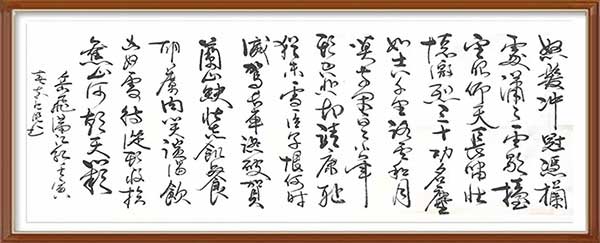 怒髮冲冠憑欄
處瀟瀟雨歇擡
望眼仰天長嘯壯
懷激烈三十功名塵
与土八千里路雲和月
莫等閑白了少年
頭空悲切靖康恥
猶未雪臣子恨何時
滅駕長車踏破賀
蘭山缺壯志飢餐
胡虜肉笑談渴飲
匈奴血待從頭收拾
舊山河朝天闕
岳飛滿江紅壬寅